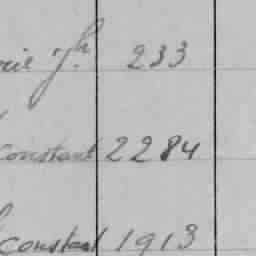 233
constant 2284
constant 1913